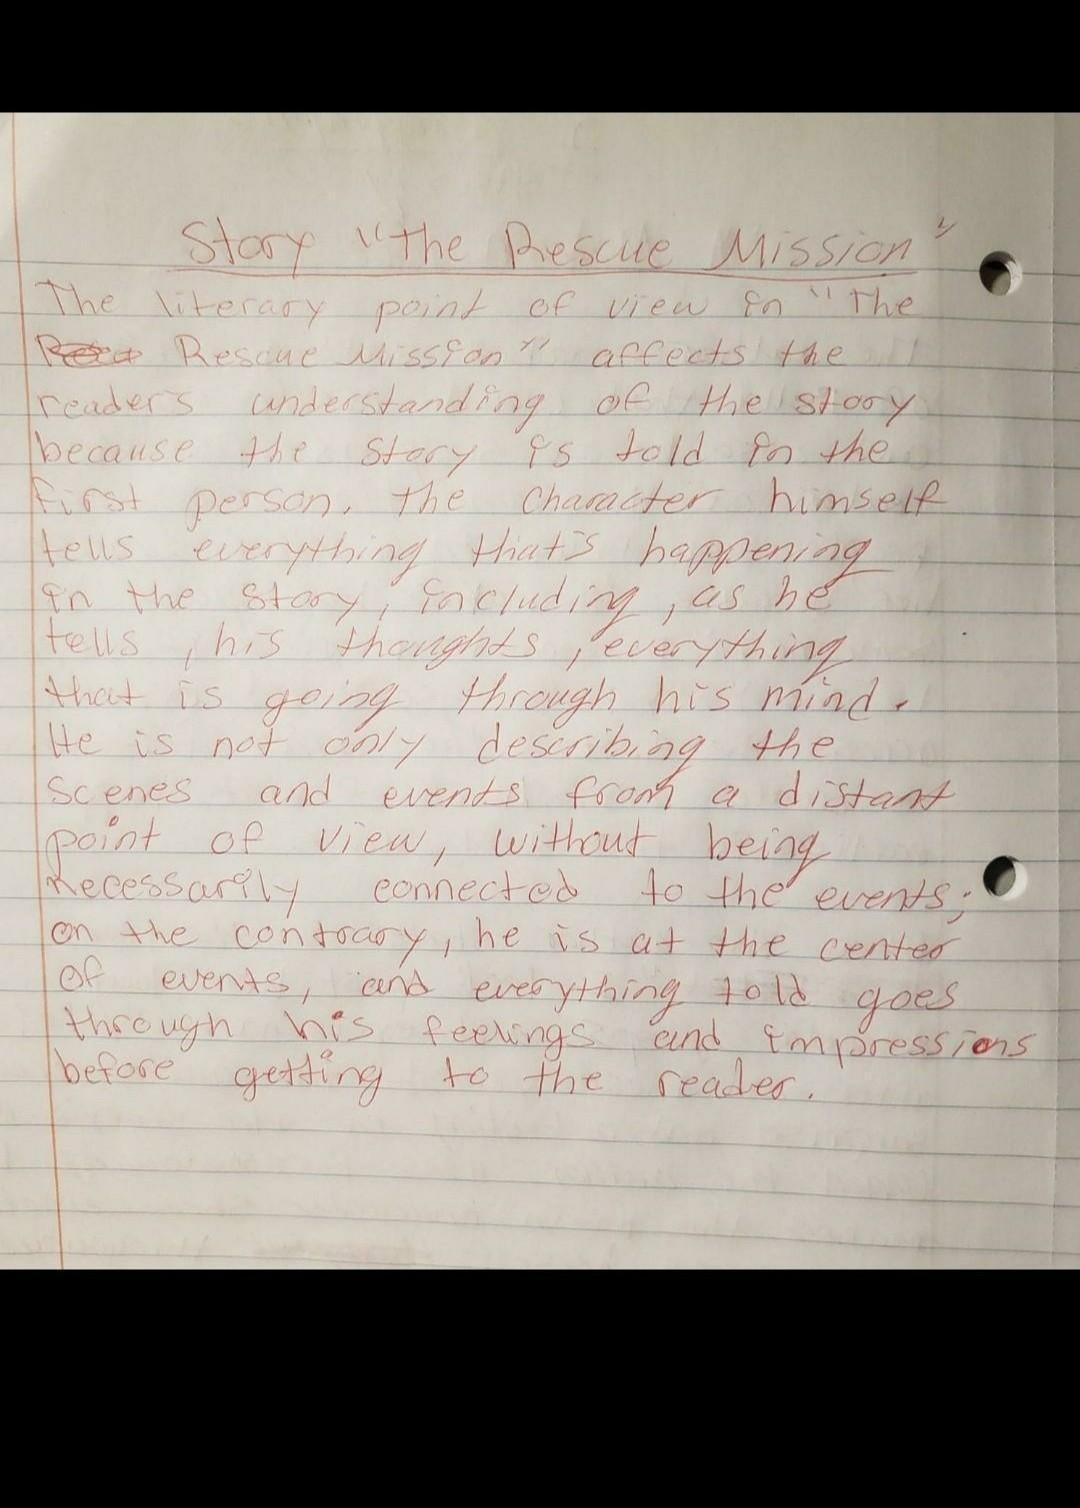 Story "The Rescue Mission"
The literary point of view in "The
Rescue Mission" affects the
reader's understanding of the story
because the story is told in the
first person. the character himself
tells everything that's happening
in the story, including, as he
tells, his thoughts, everything
that is going through his mind.
He is not only describing the
scenes and events from a distant
point of view, without being
necessarily connected to the events;
on the contrary, he is at the center
of events, and everything told goes
through his feelings and impressions
before getting to the reader.